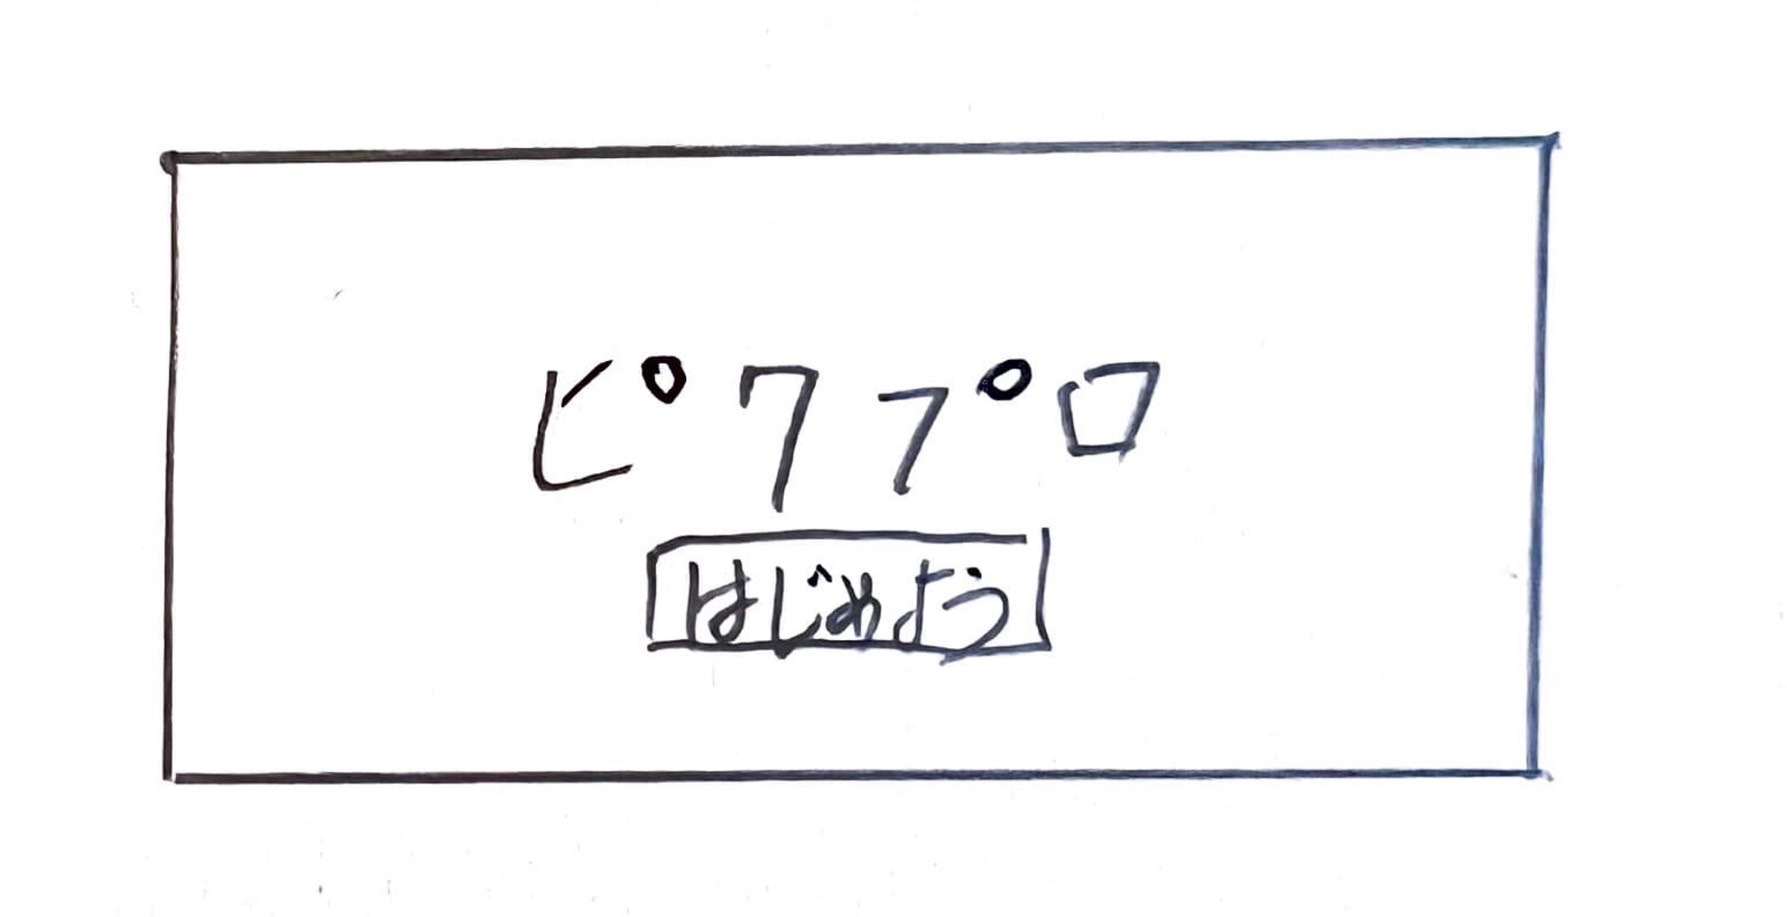 ピワプロ
はじめよう